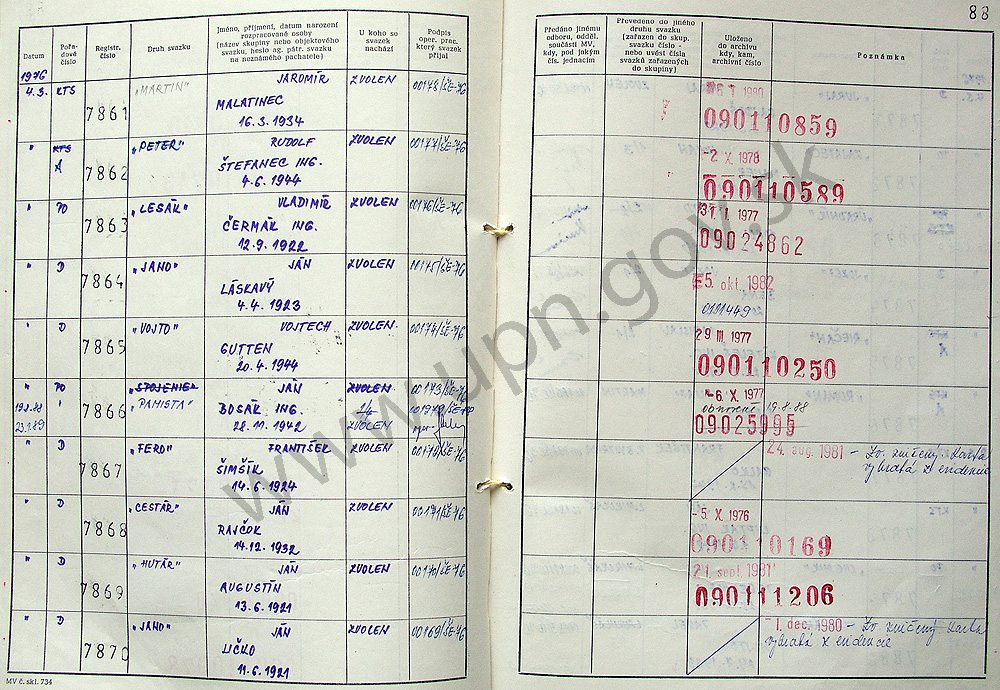 88
Datum
Pořadové číslo
Registr. číslo
Druh svazku
Jméno, příjmení, datum narození
rozpracované osoby
(název skupiny nebo objektového
svazku, heslo ag. pátr. svazku
na neznámého pachatele)
U koho se
svazek
nachází
Podpis
oper. prac.
který svazek
přijal
Předáno jinému
odboru, odděl.
součásti MV,
kdy, pod jakým
čís. jednacím
Převedeno do jiného
druhu svazku
(zařazen do skup.
svazku číslo -
nebo uvést čísla
svazků zařazených
do skupiny)
Uloženo
do archivu
kdy, kam,
archivní číslo
Poznámka
1976
4.3. KTS 7861 "MARTIN" JAROMÍR ZVOLEN 00178/ŠE-76
MALATINEC
16.3.1934
1980
090110859
" KTS 7862 "PETER" RUDOLF ZVOLEN 00177/ŠE-76
A ŠTEFANEC ING.
4.6.1944
-2 X. 1978
090110589
" PO 7863 "LESÁK" VLADIMÍR ZVOLEN 00176/ŠE-76
ČERMÁK ING.
12.9.1922
31. 1. 1977
09024862
" D 7864 "JANO" JÁN ZVOLEN 00175/ŠE-76
LÁSKAVÝ
4.4.1923
5. okt. 1982
" D 7865 "VOJTO" VOJTECH ZVOLEN 00174/ŠE-76
GUTTEN
20.4.1944
29 III. 1977
090110250
" PO 7866 "STOJENIE" JÁN ZVOLEN 00173/ŠE-76
"PAMISTA" BOSÁK ING.
28.11.1942 ZVOLEN
-6 X. 1977
obnovení 19.8.88
09025995
" D 7867 "FERO" FRANTIŠEK ZVOLEN 00172/ŠE-76
ŠIMŠÍK
14.6.1924
24. aug. 1981 - Zv. zničený karta
vybratá z evidencie
" D 7868 "CESTÁR" JÁN ZVOLEN 00171/ŠE-76
RAJČOK
14.12.1932
-5 X. 1976
090110169
" D 7869 "HUTÁR" JÁN ZVOLEN 00170/ŠE-76
AUGUSTÍN
13.6.1921
21. sept. 1981
090111206
" D 7870 "JANO" JÁN ZVOLEN 00169/ŠE-76
LIČKO
11.6.1921
1. dec. 1980 - Zv. zničený karta
vybratá z evidencie
MV č. skl. 734
www.upn.gov.sk